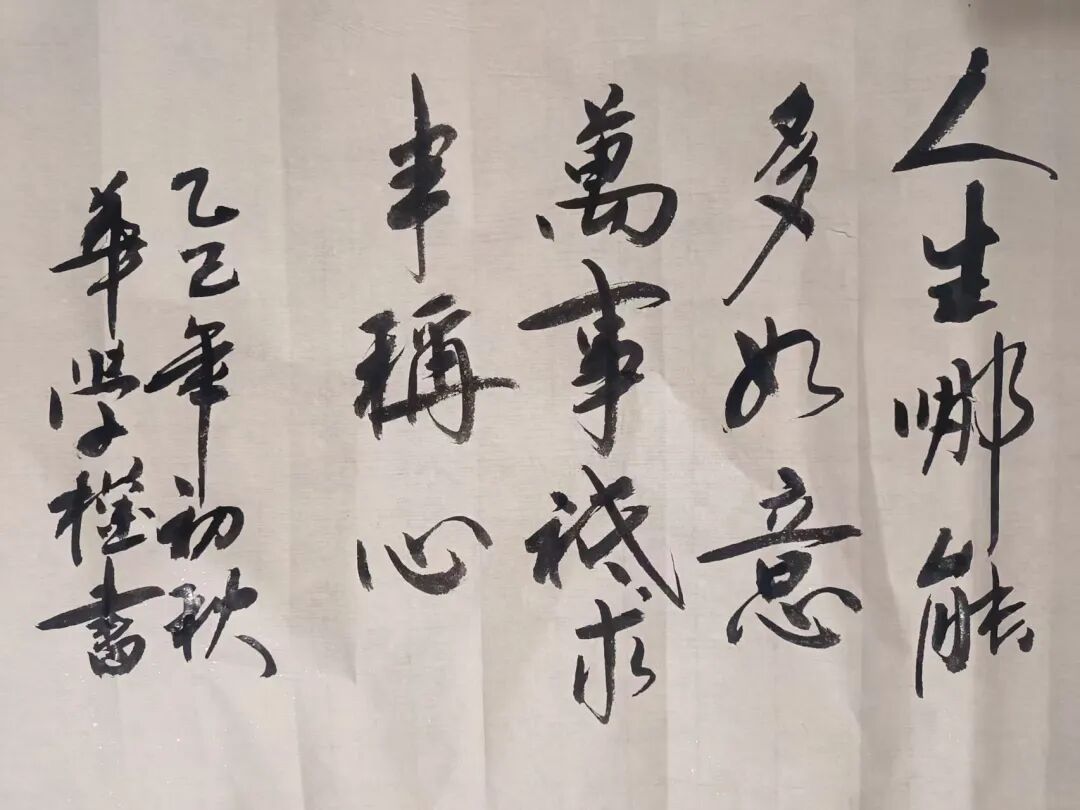 人生哪能
多如意
萬事祗求
半稱心
乙巳年初秋
華學權書